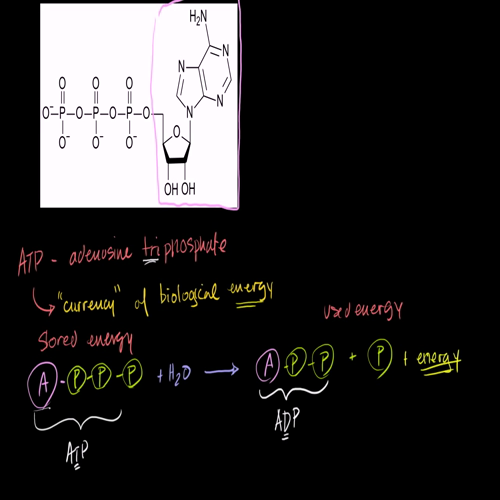 H₂N
N N
N N
O O O
O⁻ P O P O P O
O⁻ O⁻ O⁻
O
OH OH
ATP - adenosine triphosphate
"currency" of biological energy
used energy
Sored energy
A - P - P - P + H₂O → A - P - P + P + energy
ATP
ADP